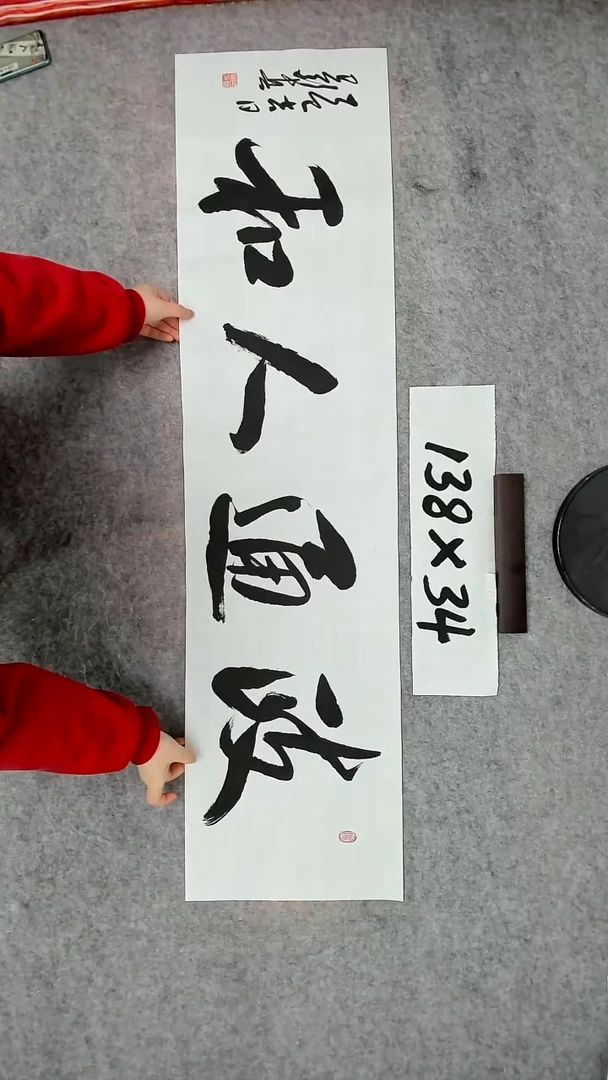 政通人和
138×34